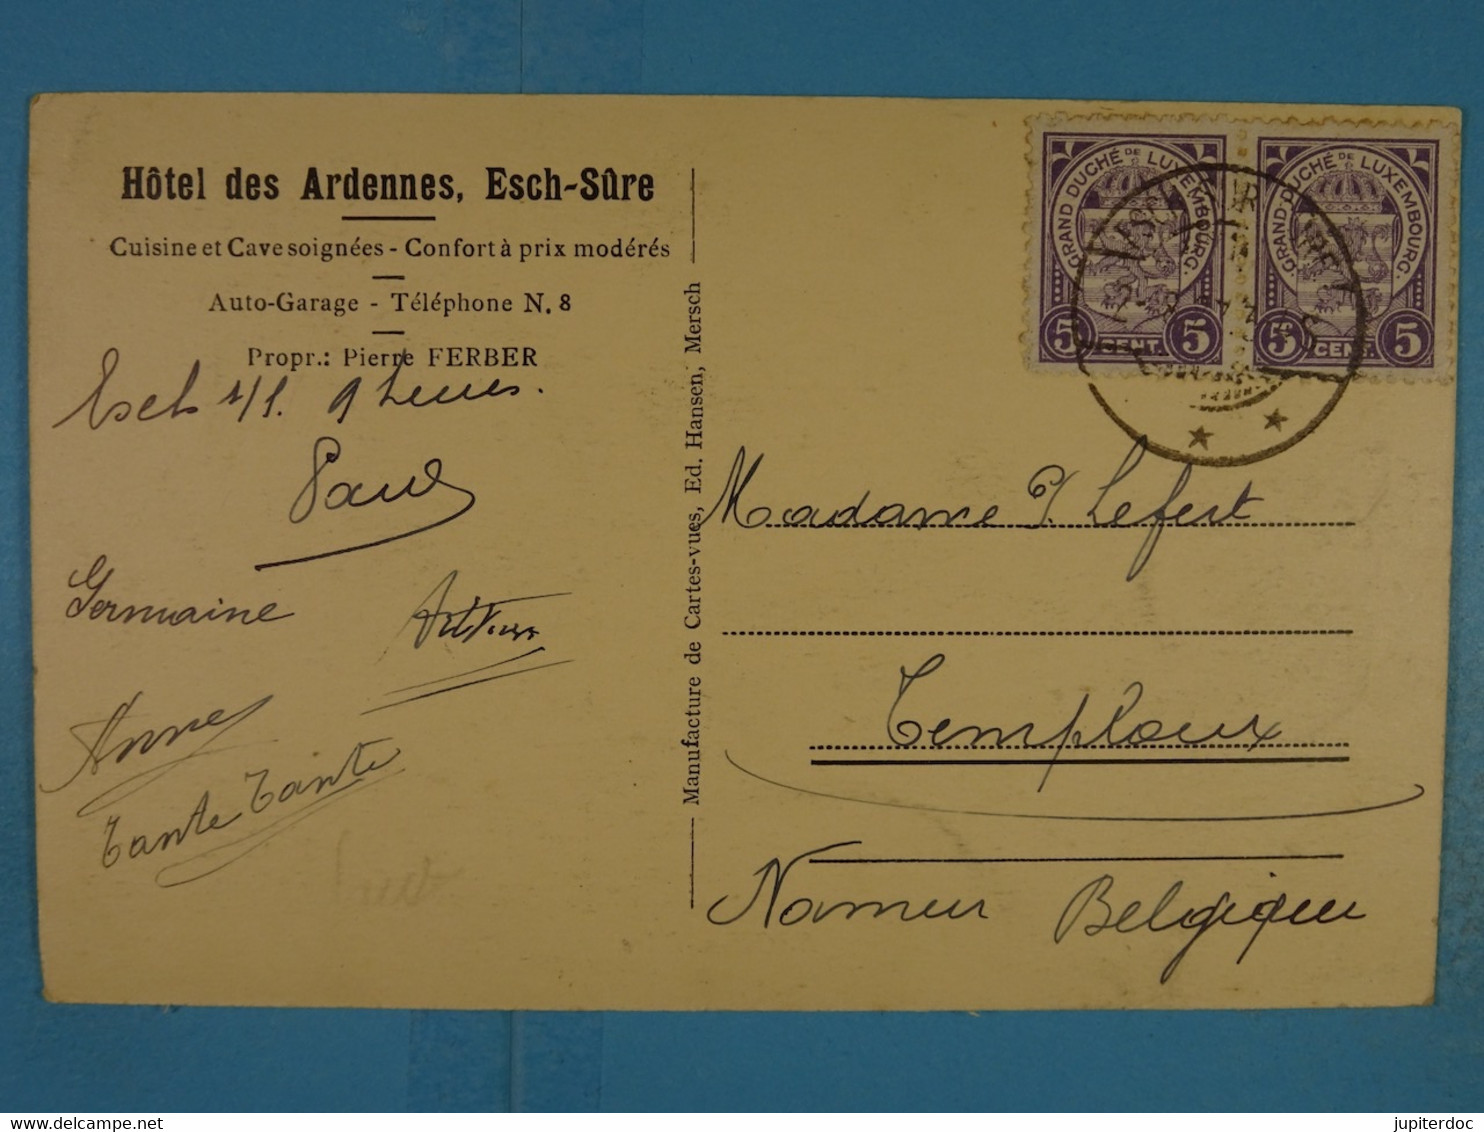 Hôtel des Ardennes, Esch-Sûre
Cuisine et Cave soignées - Confort à prix modérés
Auto-Garage - Téléphone N. 8
Propr.: Pierre FERBER
Esch 9 heures.
Paul
Germaine
Arthur
Anne
Tante Tante
Manufacture de Cartes-vues, Ed. Hansen, Mersch
GRAND DUCHÉ DE LUXEMBOURG.
5 CENT. 5
GRAND-DUCHÉ DE LUXEMBOURG.
5 CENT. 5
Madame J. Lefert
Temploux
Namur Belgique
jupiterdoc